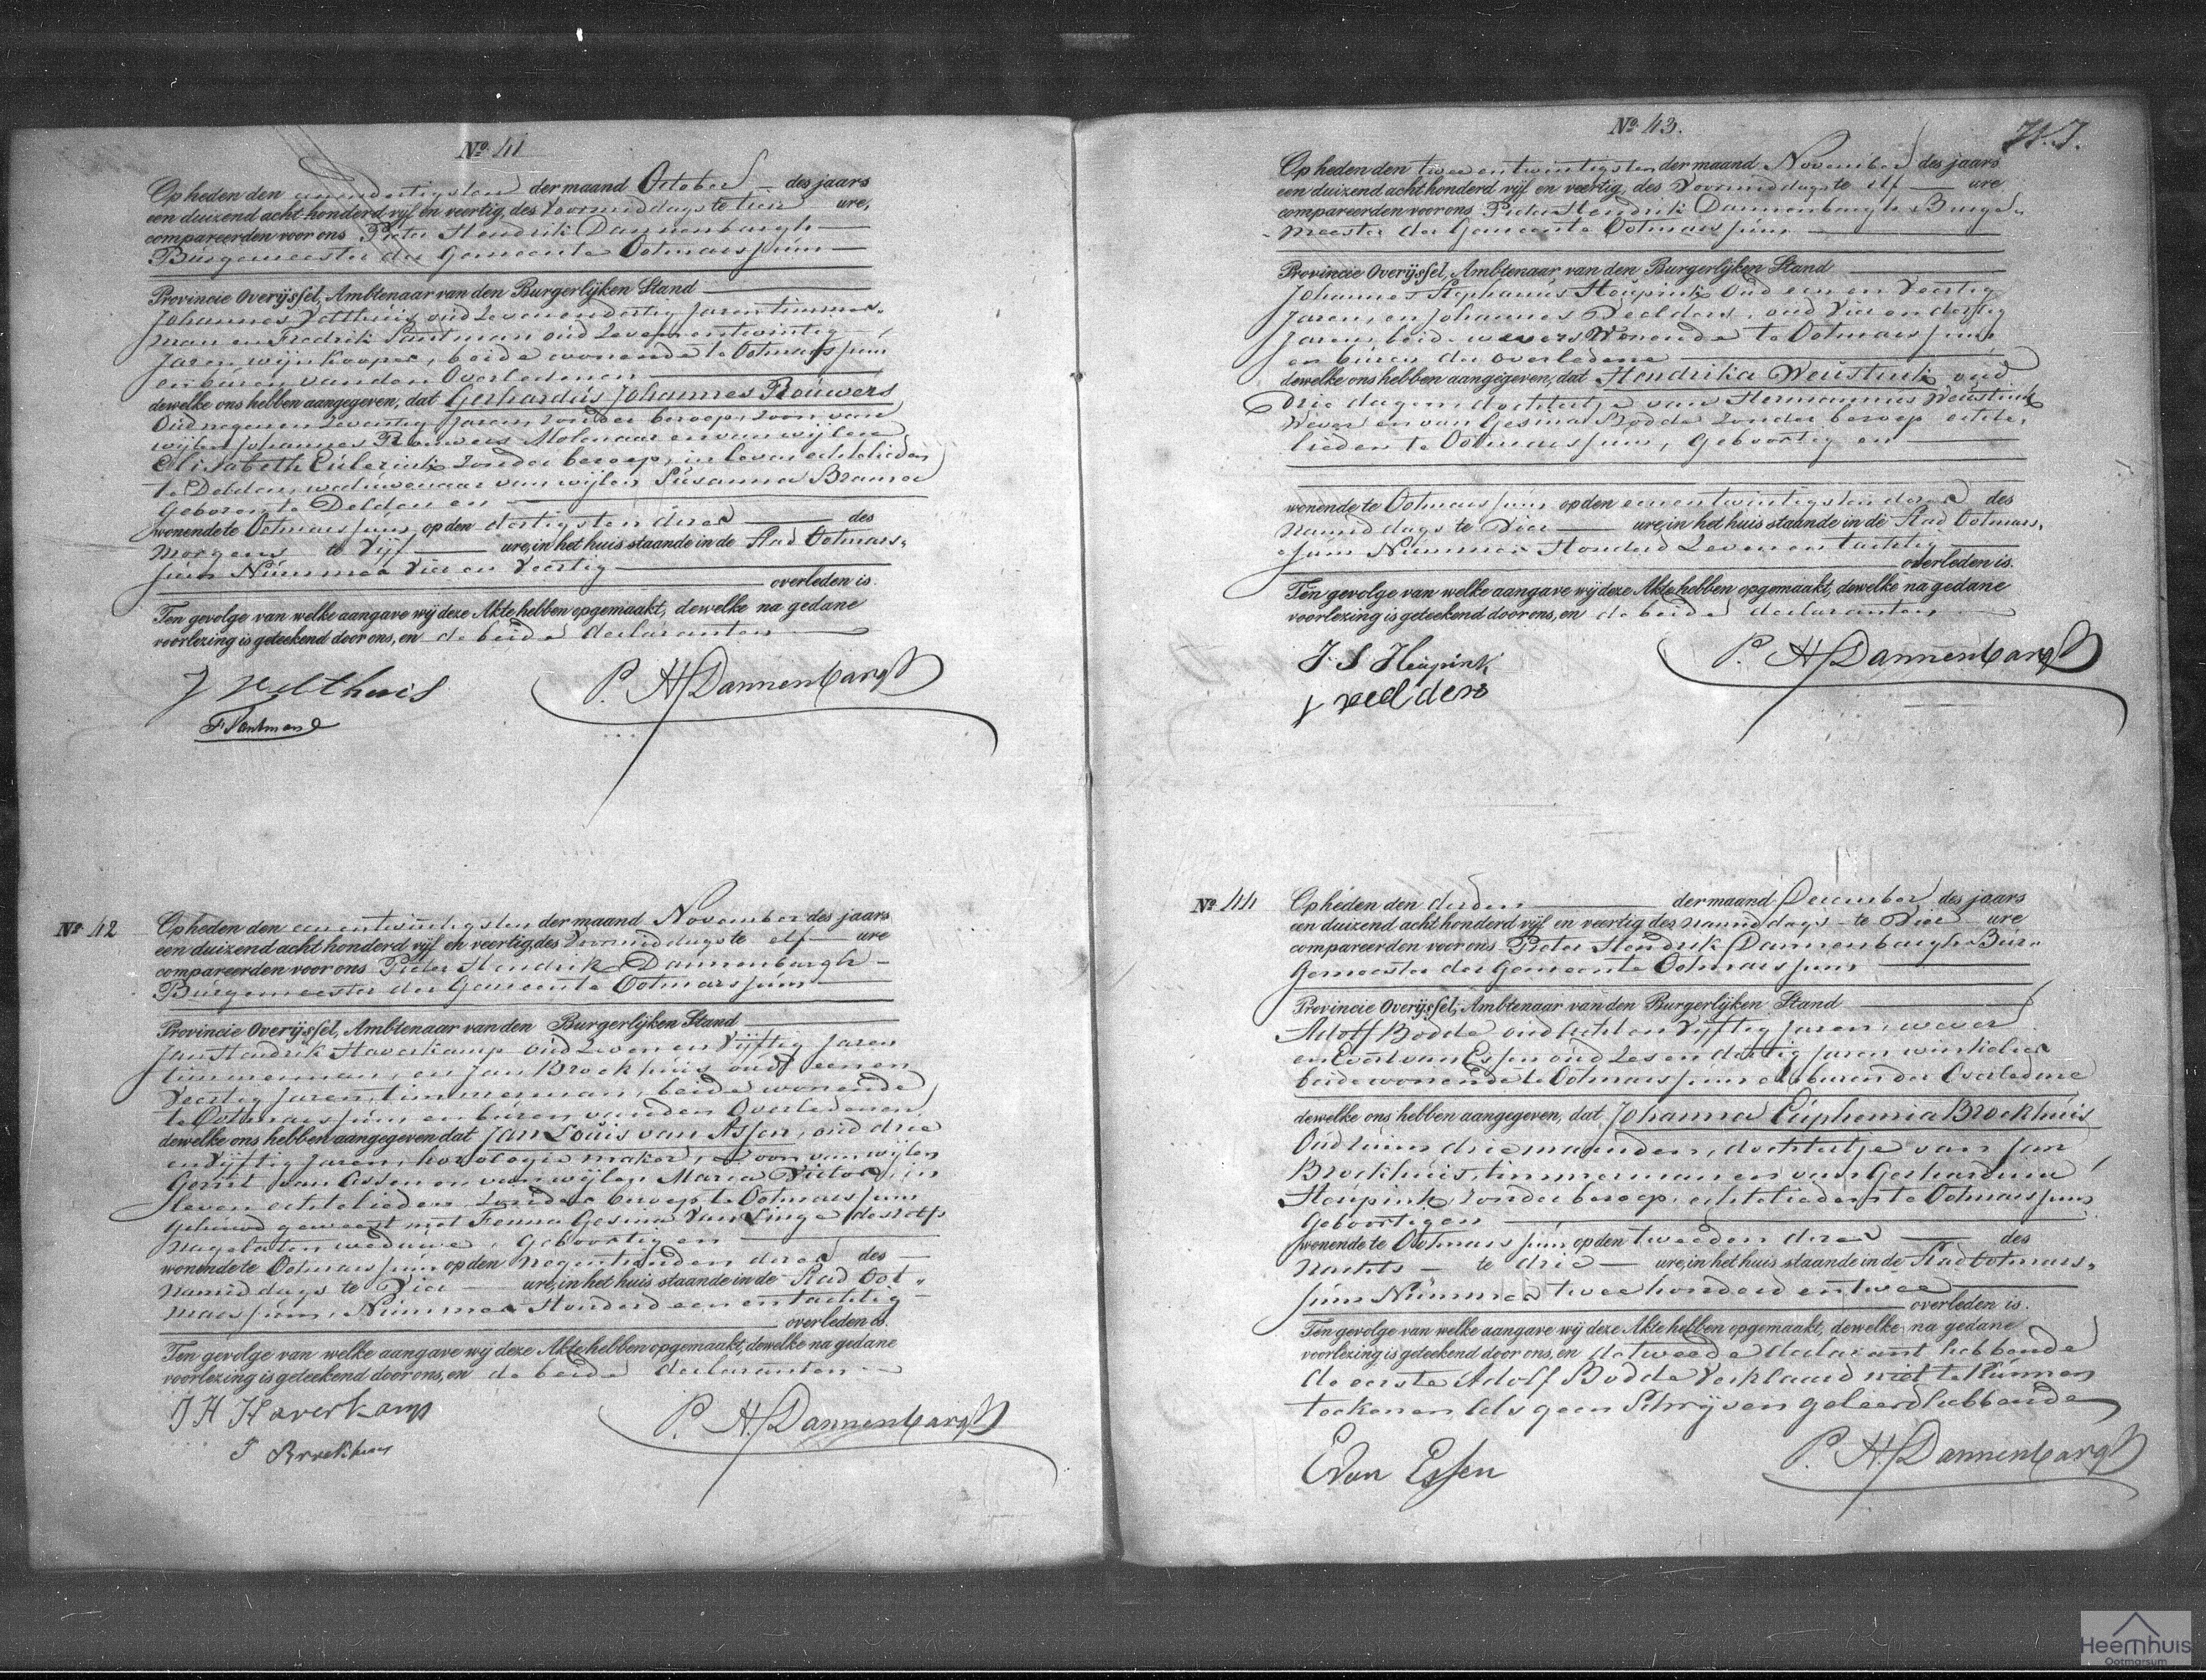 No. 41
Op heden den eenendertigsten der maand October des jaars
een duizend acht honderd vijf en veertig, des Voormiddags te tien ure,
compareerden voor ons Pieter Hendrik Dannenbargh
Burgemeester der Gemeente Ootmarssum
Provincie Overijssel, Ambtenaar van den Burgerlijken Stand
Johannes Velthuis oud Zevenendertig Jaren timmer-
man en Fredrik Santman oud Zevenentwintig
Jaren wijnkooper, beide wonende te Ootmarssum
en buren van den Overledenen
dewelke ons hebben aangegeven, dat Gerhardus Johannes Rouwers
Oud negenen Zeventig Jaren, zonder beroep, zoon van
wijlen Johannes Rouwers Molenaar en van wijlen
Elisabeth Eulerink zonder beroep, in leven echtelieden
te Delden, weduwenaar van wijlen Susanna Bramer
Geboren te Delden en
wonende te Ootmarssum op den dertigsten dezer des
morgens te Vijf ure, in het huis staande in de Stad Ootmars-
sum Nummer Vier en Veertig
overleden is.
Ten gevolge van welke aangave wij deze Akte hebben opgemaakt, dewelke na gedane
voorlezing is geteekend door ons, en de beide declaranten
J Velthuis
P. H. Dannenbargh
F Santman
No. 42
Op heden den eenentwintigsten der maand November des jaars
een duizend acht honderd vijf en veertig, des Voormiddags te elf ure
compareerden voor ons Pieter Hendrik Dannenbargh
Burgemeester der Gemeente Ootmarssum
Provincie Overijssel, Ambtenaar van den Burgerlijken Stand
Jan Hendrik Haverkamp oud Zeven en Vijftig Jaren
timmerman, en Jan Brockhuis oud eenen
Veertig Jaren, timmerman, beide wonende
te Ootmarssum en buren van den Overledenen
dewelke ons hebben aangegeven dat Jan Louis van Assen, oud drie
en Vijftig Jaren, horologie maker, zoon van wijlen
Gerrit van Assen en van wijlen Maria Victor, in
leven echtelieden zonder beroep te Ootmarssum
Gehuwd geweest met Fenna Gesina van Linge deszelfs
nagelaten weduwe, Geboortig en
wonende te Ootmarssum op den negentienden dezer des
Namiddags te Vier ure, in het huis staande in de Stad Oot-
marssum, Nummer Honderd een en tachtig
overleden is.
Ten gevolge van welke aangave wij deze Akte hebben opgemaakt, dewelke na gedane
voorlezing is geteekend door ons, en de beide declaranten
J H Haverkamp
P. H. Dannenbargh
J Brockhuis
No. 43.
Op heden den twee en twintigsten der maand November des jaars
een duizend acht honderd vijf en veertig, des Voormiddags te elf ure
compareerden voor ons Pieter Hendrik Dannenbargh Burge-
meester der Gemeente Ootmarssum,
Provincie Overijssel, Ambtenaar van den Burgerlijken Stand
Johannes Stephanus Heupink Oud een en Veertig
Jaren, en Johannes Veelders, oud Vier en dertig
Jaren, beide wevers Wonende te Ootmarssum
en buren der overledene
dewelke ons hebben aangegeven, dat Hendrika Weustink oud
Drie dagen, dochtertje van Hermannus Weustink
Wever en van Gesina Bodde Zonder beroep echte-
lieden te Ootmarssum, Geboortig en
wonende te Ootmarssum op den eenentwintigsten dezer des
Namiddags te Vier ure, in het huis staande in de Stad Ootmars-
sum Nummer Honderd Zeven en tachtig
overleden is.
Ten gevolge van welke aangave wij deze Akte hebben opgemaakt, dewelke na gedane
voorlezing is geteekend door ons, en de beide declaranten
J. S Heupink
P. H. Dannenbargh
J veelders
No. 44
Op heden den derden der maand December des jaars
een duizend acht honderd vijf en veertig des Namiddags te Vier ure
compareerden voor ons Pieter Hendrik Dannenbargh Bur-
gemeester der Gemeente Ootmarssum
Provincie Overijssel, Ambtenaar van den Burgerlijken Stand
Adolf Bodde oud Acht en Vijftig Jaren, wever
en Evert van Essen oud Zes en dertig Jaren winkelier
beide wonende te Ootmarssum en buren der Overledene
dewelke ons hebben aangegeven, dat Johanna Euphemia Brockhuis
Oud ruim drie maanden, dochtertje van Jan
Brockhuis, timmerman en van Gerhardina
Heupink, Zonder beroep, echtelieden te Ootmarssum
Geboortig en
wonende te Ootmarssum op den tweeden dezer des
Nachts te drie ure, in het huis staande in de Stad Ootmars-
sum Nummer twee honderd en twee
overleden is.
Ten gevolge van welke aangave wij deze Akte hebben opgemaakt, dewelke na gedane
voorlezing is geteekend door ons, en de tweede declarant hebbende
de eerste Adolf Bodde Verklaard niet te kunnen
teekenen als geen Schrijven geleerd hebbende
E Van Essen
P. H. Dannenbargh
Heemhuis
Ootmarsum